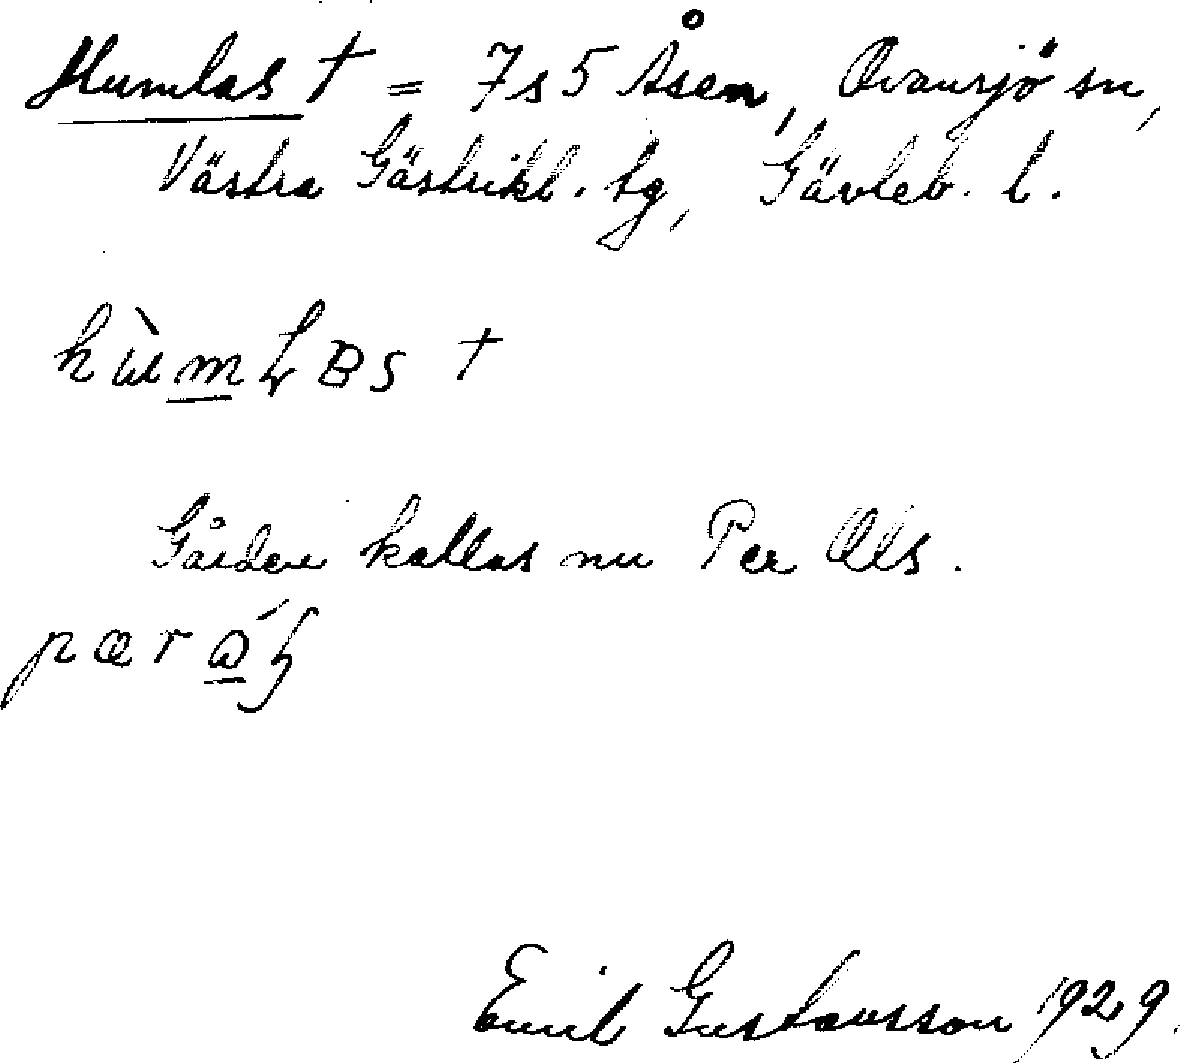 Humlas † = 7s5 Åsen, Ovansjö sn,
Västra Gästrikl. tg, Gävleb. l.
hùmLBS †
Gården kallas nu Per Ols.
Emil Gustavsson 1929.